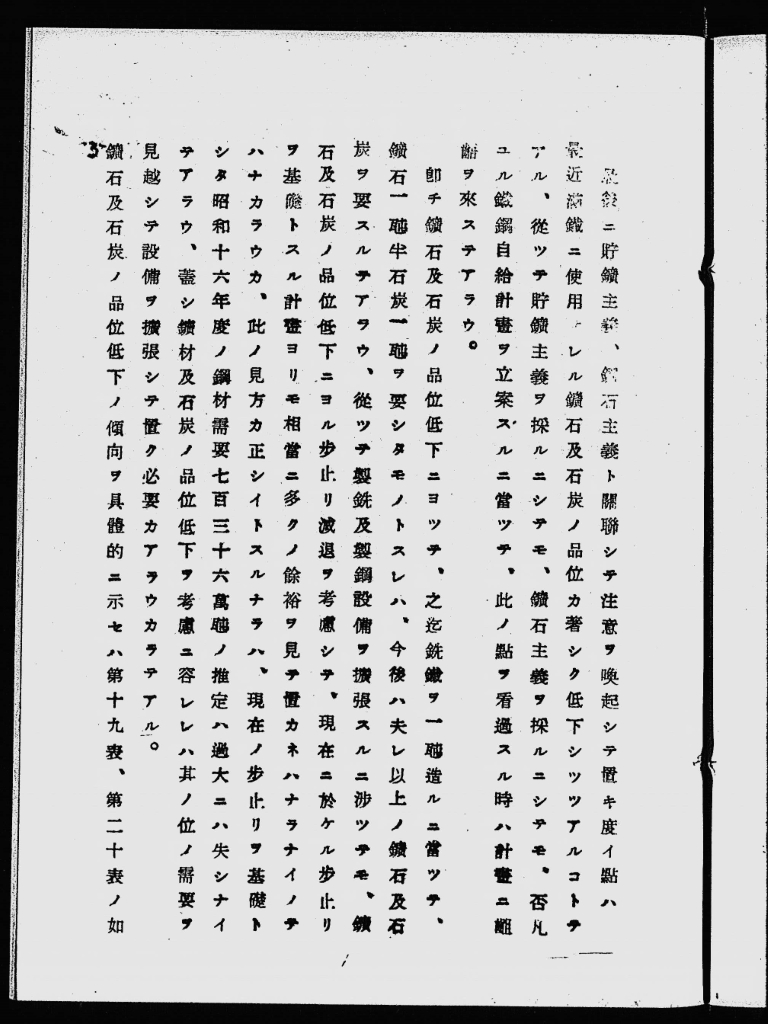 最後ニ貯鑛主義、鑛石主義ト關聯シテ注意ヲ喚起シテ置キ度イ點ハ
最近滿鐵ニ使用サレル鑛石及石炭ノ品位カ著シク低下シツツアルコトテ
アル、從ツテ貯鑛主義ヲ採ルニシテモ、鑛石主義ヲ採ルニシテモ、否凡
ユル鐵鋼自給計畫ヲ立案スルニ當ツテ、此ノ點ヲ看過スル時ハ計畫ニ齟
齬ヲ來ステアラウ。
卽チ鑛石及石炭ノ品位低下ニヨツテ、之迄銑鐵ヲ一瓲造ルニ當ツテ、
鑛石一瓲半石炭一瓲ヲ要シタモノトスレハ、今後ハ夫レ以上ノ鑛石及石
炭ヲ要スルテアラウ、從ツテ製銑及製鋼設備ヲ擴張スルニ涉ツテモ、鑛
石及石炭ノ品位低下ニヨル步止リ減退ヲ考慮シテ、現在ニ於ケル步止リ
ヲ基礎トスル計畫ヨリモ相當ニ多クノ餘裕ヲ見テ置カネハナラナイノテ
ハナカラウカ、此ノ見方カ正シイトスルナラハ、現在ノ步止リヲ基礎ト
シタ昭和十六年度ノ鋼材需要七百三十六萬瓲ノ推定ハ過大ニハ失シナイ
テアラウ、蓋シ鑛材及石炭ノ品位低下ヲ考慮ニ容レレハ其ノ位ノ需要ヲ
見越シテ設備ヲ擴張シテ置ク必要カアラウカラテアル。
鑛石及石炭ノ品位低下ノ傾向ヲ具體的ニ示セハ第十九表、第二十表ノ如